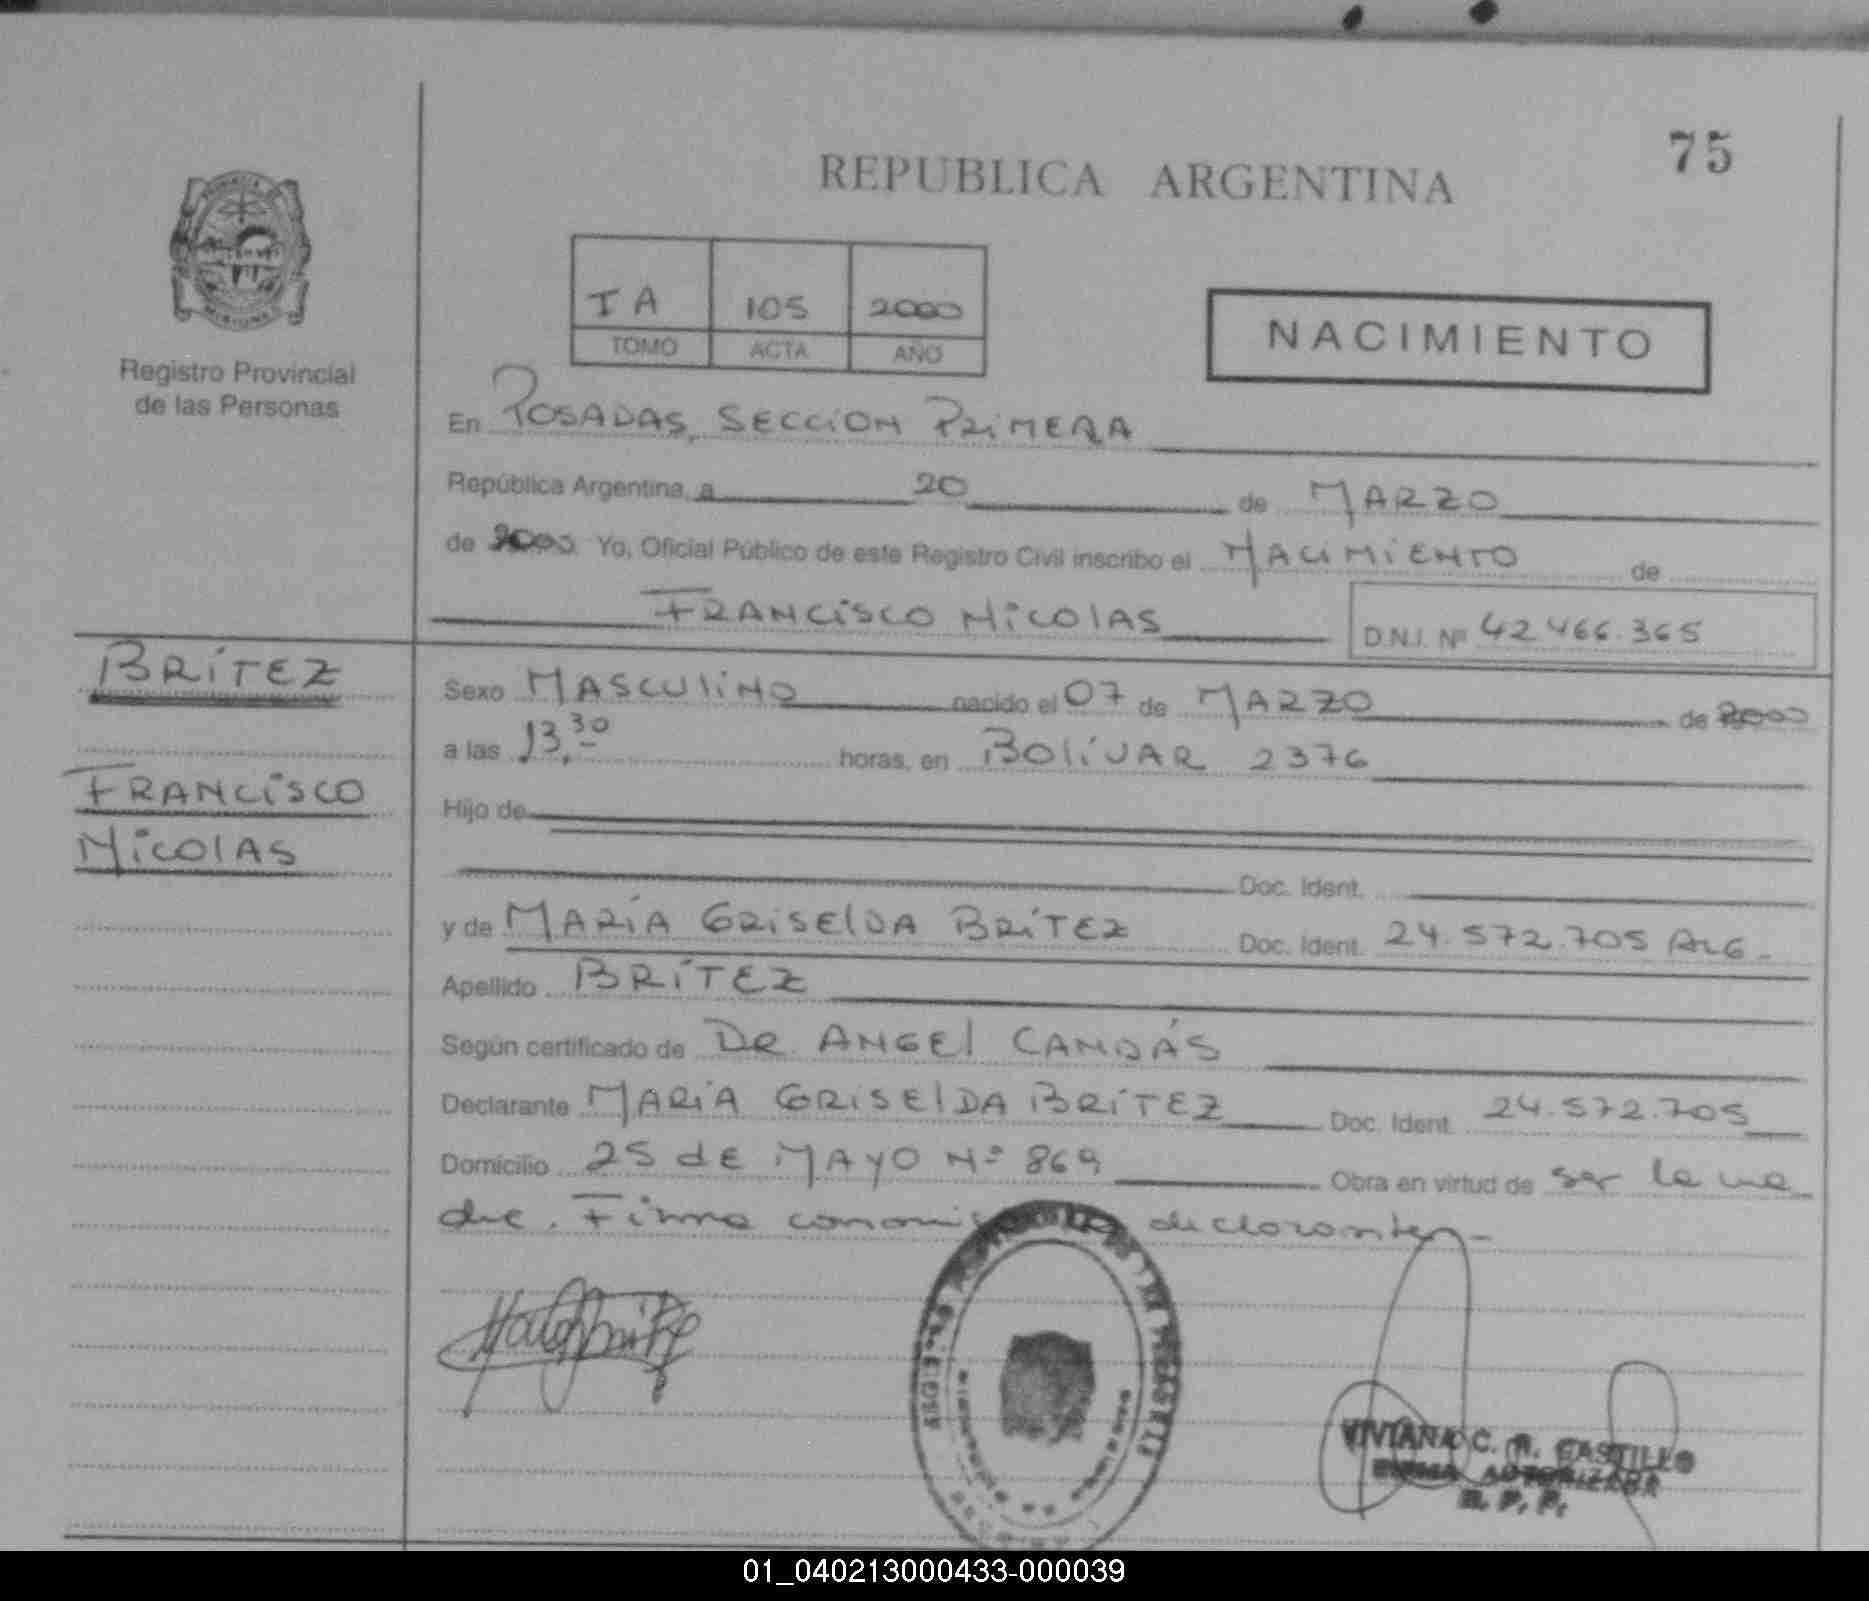 75
REPUBLICA ARGENTINA
I A 105 2000
TOMO ACTA AÑO
NACIMIENTO
Registro Provincial
de las Personas
En POSADAS, SECCION PRIMERA
República Argentina, a 20 de MARZO
de 2000 Yo, Oficial Público de este Registro Civil inscribo el NACIMIENTO de
FRANCISCO NICOLAS D.N.I. Nº 42.466.365
BRÍTEZ
FRANCISCO
NICOLAS
Sexo MASCULINO nacido el 07 de MARZO de 2000
a las 13,30 horas, en BOLÍVAR 2376
Hijo de
Doc. Ident.
y de MARÍA GRISELDA BRÍTEZ Doc. Ident. 24.572.705 ARG.
Apellido BRÍTEZ
Según certificado de DR. ANGEL CANDÁS
Declarante MARÍA GRISELDA BRÍTEZ Doc. Ident. 24.572.705
Domicilio 25 de MAYO Nº 869 Obra en virtud de ser la ma
dre. Firma conmigo declarante.-
VIVIANA C. R. CASTILLO
FIRMA AUTORIZADA
R. P. P.
01_040213000433-000039